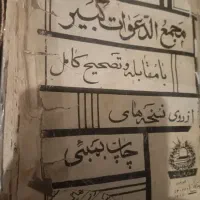 مجمع الدعوات کبیر
با مقابله و تصحیح کامل
از روی نسخه های
چاپ بمبئی